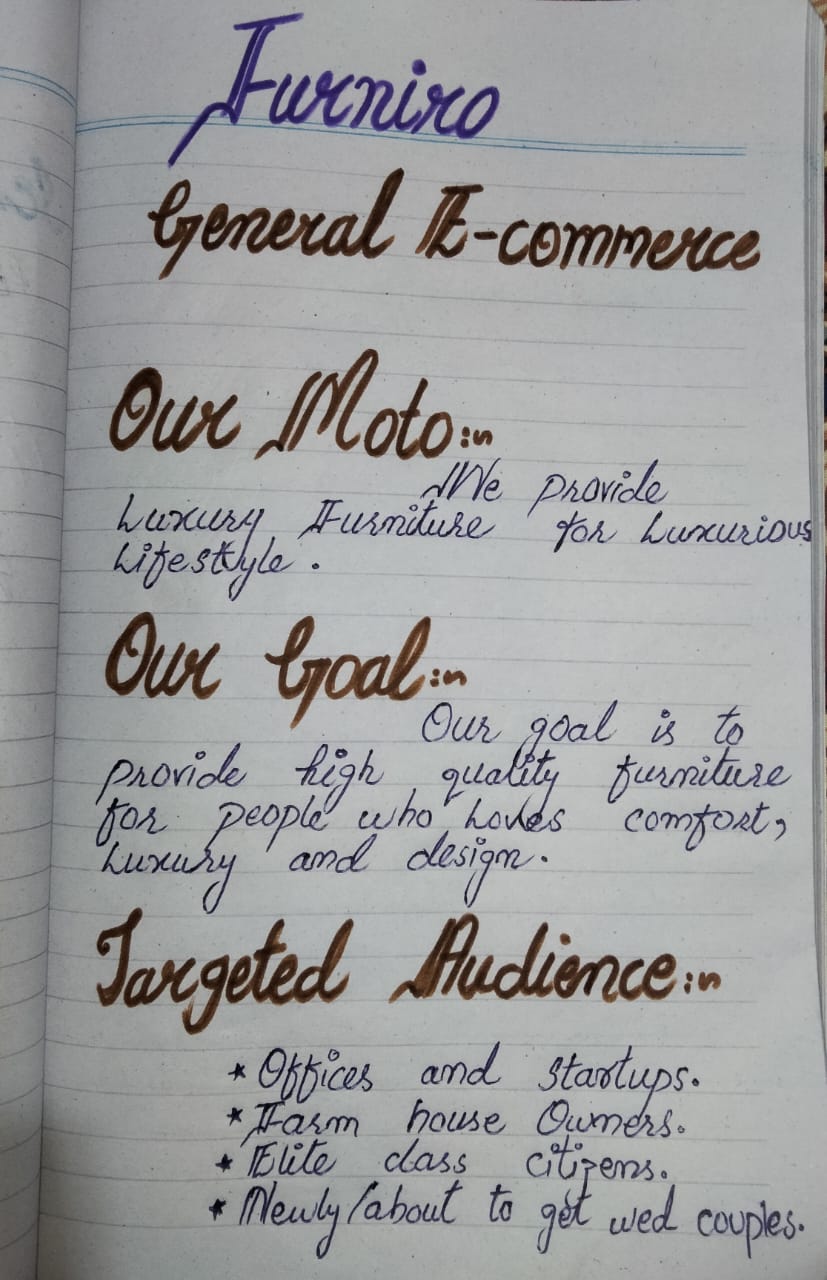 Furniro
General E-commerce
Our Moto:~
We provide
Luxury Furniture for Luxurious
Lifestyle.
Our Goal:~
Our goal is to
provide high quality furniture
for people who Loves comfort,
Luxury and design.
Targeted Audience:~
* Offices and startups.
* Farm house Owners.
* Elite class citizens.
* Newly/about to get wed couples.